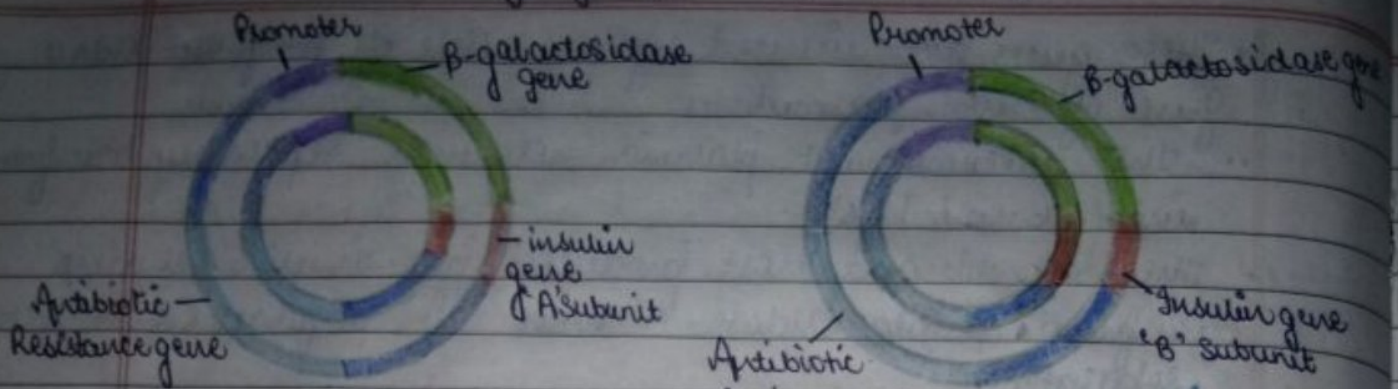 Promoter
β-galactosidase
gene
insulin
gene
'A' subunit
Antibiotic
Resistance gene
Promoter
β-galactosidase gene
Insulin gene
'B' subunit
Antibiotic